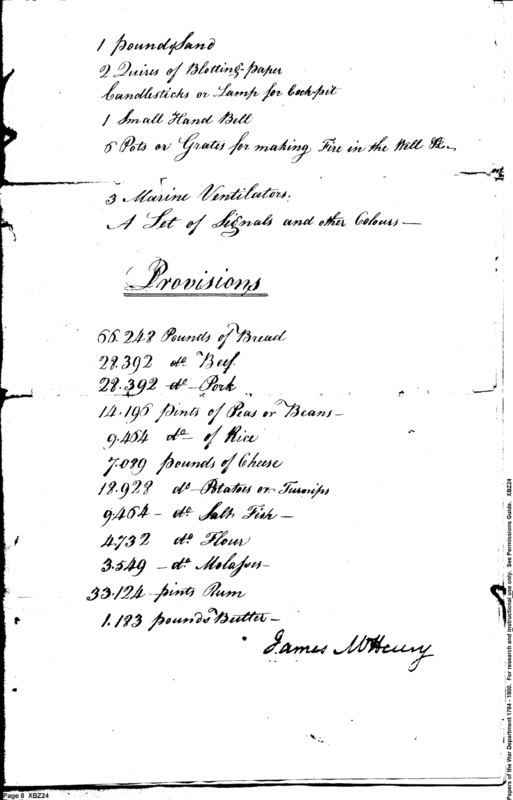 1 pound of Sand
2 Quires of Blotting-paper
Candlesticks or Lamp for Cock-pit
1 Small Hand Bell
6 Pots or Grates for making Fire in the Well &c.
3 Marine Ventilators.
A Set of Signals and other Colours—
Provisions
66.248 Pounds of Bread
28.392 do Beef
28.392 do Pork
14.196 pints of Peas or Beans—
9.464 do of Rice
7.089 pounds of Cheese
18.928 do Potatoes or Turnips
9.464 – do Salt Fish—
4.732 do Flour
3.549 – do Molasses—
33.124 pints Rum
1.183 pounds Butter—
James McHenry
Page 8 XBZ24
Papers of the War Department 1784 - 1800. For research and instructional use only. See Permissions Guide. XBZ24